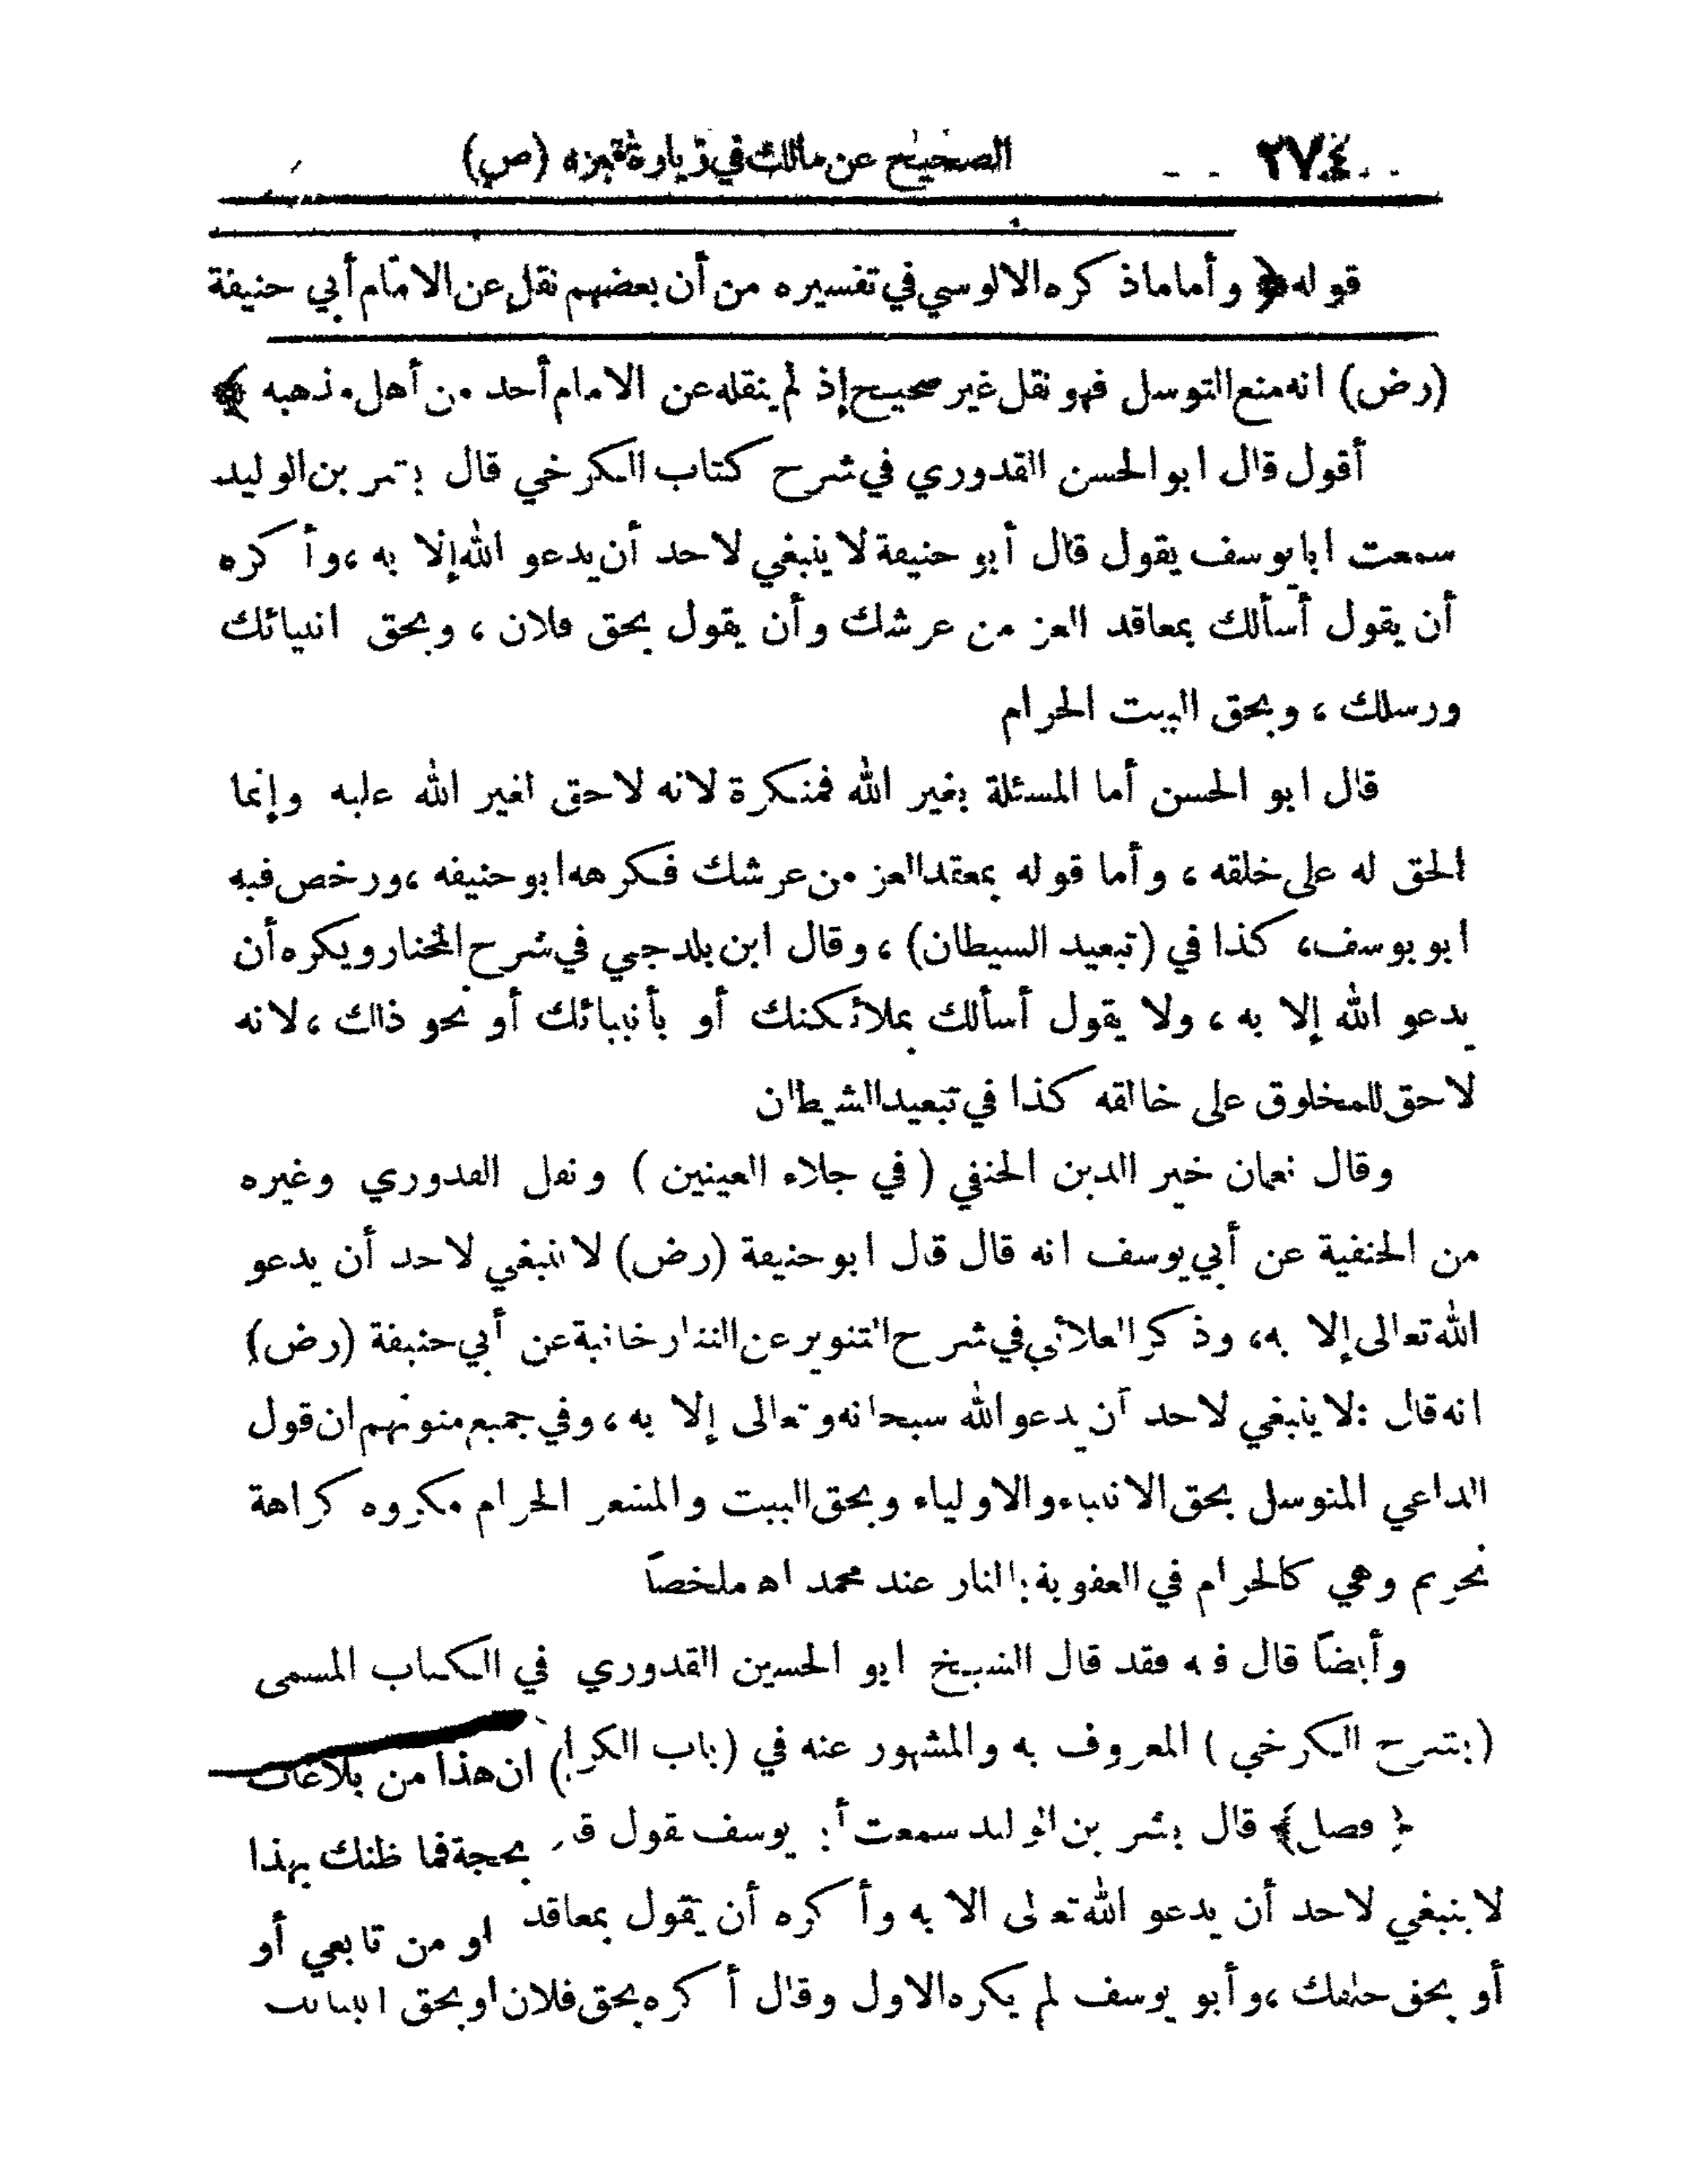 ٢٧٤ الصحيح عن مالك في زيارة قبره (ص)
قوله ﴿ وأما ما ذكره الالوسي في تفسيره من أن بعضهم نقل عن الامام أبي حنيفة
(رض) انه منع التوسل فهو نقل غير صحيح إذ لم ينقله عن الامام أحد من أهل مذهبه ﴾
أقول قال ابو الحسن القدوري في شرح كتاب الكرخي قال بشر بن الوليد
سمعت ابا يوسف يقول قال أبو حنيفة لا ينبغي لاحد أن يدعو الله إلا به ، وأكره
أن يقول أسألك بمعاقد العز من عرشك وأن يقول بحق فلان ، وبحق انبيائك
ورسلك ، وبحق البيت الحرام
قال ابو الحسن أما المسئلة بغير الله فمنكرة لانه لا حق لغير الله عليه وإنما
الحق له على خلقه ، وأما قوله بمعقد العز من عرشك فكرهه ابو حنيفه ، ورخص فيه
ابو يوسف، كذا في (تبعيد الشيطان) ، وقال ابن بلدجي في شرح المختار ويكره أن
يدعو الله إلا به ، ولا يقول أسألك بملائكتك أو بأنبيائك أو نحو ذلك ، لانه
لا حق للمخلوق على خالقه كذا في تبعيد الشيطان
وقال نعمان خير الدين الحنفي ( في جلاء العينين ) ونقل القدوري وغيره
من الحنفية عن أبي يوسف انه قال قال ابو حنيفة (رض) لا ينبغي لاحد أن يدعو
الله تعالى إلا به، وذكر العلائي في شرح التنوير عن التتارخانية عن أبي حنيفة (رض)
انه قال : لا ينبغي لاحد أن يدعو الله سبحانه وتعالى إلا به ، وفي جميع متونهم ان قول
الداعي المتوسل بحق الانبياء والاولياء وبحق البيت والمشعر الحرام مكروه كراهة
تحريم وهي كالحرام في العقوبة بالنار عند محمد اه ملخصاً
وأيضاً قال فيه فقد قال الشيخ ابو الحسين القدوري في الكتاب المسمى
(بشرح الكرخي ) المعروف به والمشهور عنه في (باب الكرا) ان هذا من بلاغات
﴿ فصل ﴾ قال بشر بن الوليد سمعت أ يوسف يقول ق بحجة فما ظنك بهذا
لا ينبغي لاحد أن يدعو الله تعالى الا به وأكره أن تقول بمعاقد او من تابعي أو
أو بحق خلقك ، وأبو يوسف لم يكره الاول وقال أكره بحق فلان او بحق انبيائك